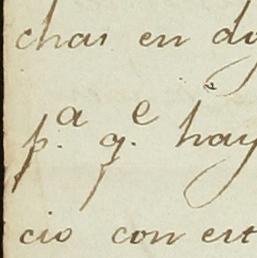 chas en dy
p.ª q.ᵉ hay
cio con est